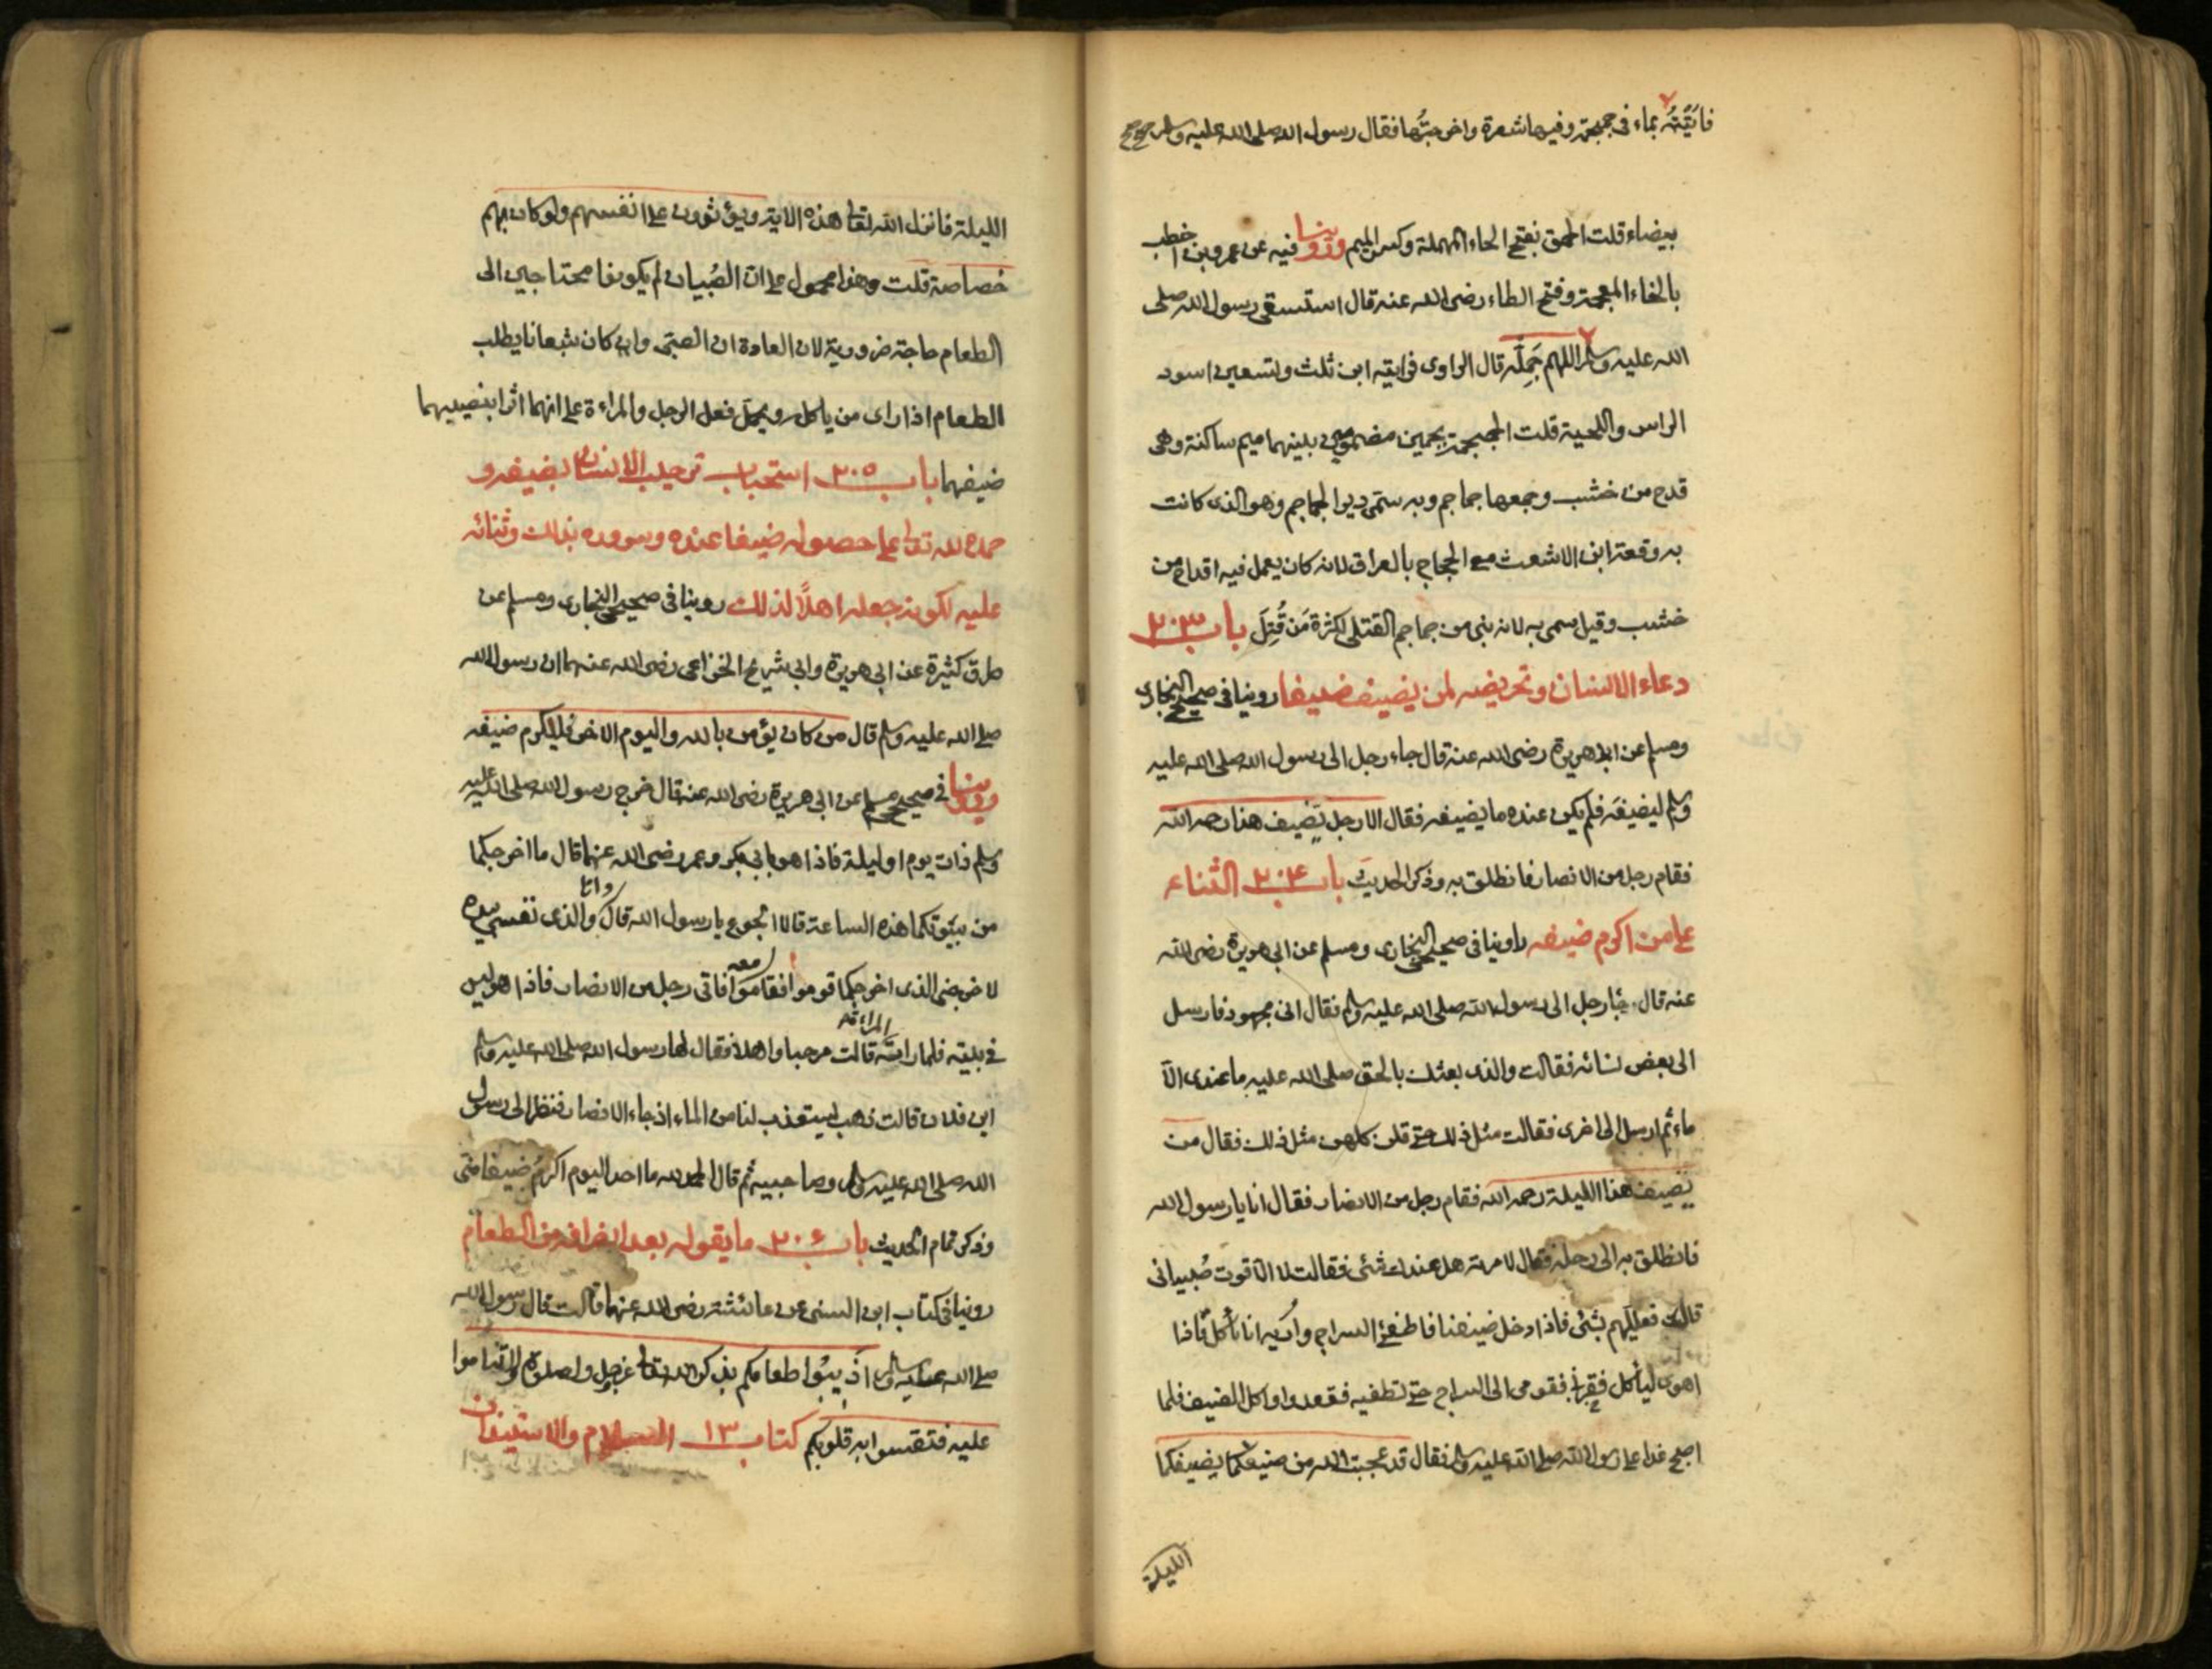 فاتيته بماء في جمجمة وفيها شعرة واخرجتها فقال رسول الله صلى الله عليه وسلم صح
بيضاء قلت الحمق بفتح الحاء المهملة وكسر الميم وروينا فيه عن عمرو بن اخطب
بالخاء المعجمة وفتح الطاء رضى الله عنه قال استسقى رسول الله صلى
الله عليه وسلم اللهم جَمِّلْه قال الراوى فرايته ابن ثلث وتسعين اسود
الراس واللحية قلت الجمجمة بجيمين مضمومتين بينهما ميم ساكنة وهى
قدح من خشب وجمعها جماجم وبه سمّى دير الجماجم وهو الذى كانت
به وقعة ابن الاشعث مع الحجاج بالعراق لانه كان يعمل فيه اقداح من
خشب وقيل سمى به لانه بنى من جماجم القتلى لكثرة مَن قُتِلَ باب ٢٠٣
دعاء الانسان وتحريضه لمن يضيف ضيفا روينا فى صحيح البخارى
ومسلم عن ابى هريرة رضى الله عنه قال جاء رجل الى رسول الله صلى الله عليه
وسلم ليضيفَه فلم يكن عنده ما يضيفه فقال الا رجل يضيف هذا رحمه الله
فقام رجل من الانصار فانطلق به وذكر الحديث باب ٢٠٤ الثناء
على من اكرم ضيفه روينا فى صحيح البخارى ومسلم عن ابى هريرة رضى الله
عنه قال جاء رجل الى رسول الله صلى الله عليه وسلم فقال انى مجهود فارسل
الى بعض نسائه فقالت والذى بعثك بالحق صلى الله عليه ما عندى الّا
ماء ثم ارسل الى اخرى فقالت مثل ذلك حتى قلن كلهن مثل ذلك فقال من
يضيف هذا الليلة رحمه الله فقام رجل من الانصار فقال انا يا رسول الله
فانطلق به الى رحله فقال لامرته هل عندك شئى فقالت لا الّا قوت صُبيانى
قال فعلليهم بشئى فاذا دخل ضيفنا فاطفئ السراج وأريه انا نأكل فاذا
اهوى ليأكل فقومى الى السراج حتى تطفيه فقعدوا واكل الضيف فلما
اصبح غدا على رسول الله صلى الله عليه وسلم فقال قد عجبت الله من صنيعكما بضيفكما
الليلة
الليلة فانزل الله تعالى هذه الاية ويؤثرون على انفسهم ولو كان بهم
خصاصة قلت وهذا محمول على ان الصُبيان لم يكونوا محتاجين الى
الطعام حاجة ضرورية لان العادة ان الصبى وان كان شبعانا يطلب
الطعام اذا راى من ياكل ويحمل فعل الرجل والمراءة على انهما اثرا بنصيبهما
ضيفهما باب ٢٠٥ استحباب ترحيب الانسان بضيفه و
حمده لله تعالى على حصوله ضيفا عنده وسروره بذلك وثنائه
عليه لكونه جعله اهلًا لذلك روينا فى صحيح البخارى ومسلم عن
طرق كثيرة عن ابى هريرة وابى شريح الخزاعى رضى الله عنهما ان رسول الله
صلى الله عليه وسلم قال من كان يؤمن بالله واليوم الاخر فليكرم ضيفه
وروينا فى صحيح مسلم عن ابى هريرة رضى الله عنه قال خرج رسول الله صلى الله عليه
وسلم ذات يوم او ليلة فاذا هو بابى بكر وعمر رضى الله عنهما قال ما اخرجكما
من بيوتكما هذه الساعة قالا الجوع يا رسول الله قال وانا والذى نفسى بيده
لاخرجنى الذى اخرجكما قوموا فقاموا معه فاتى رجل من الانصار فاذا هو ليس
فى بيته فلما راته المراءة قالت مرحبا واهلا فقال لها رسول الله صلى الله عليه وسلم
اين فلان قالت ذهب يستعذب لنا من الماء اذ جاء الانصار فنظر الى رسول
الله صلى الله عليه وسلم وصاحبيه ثم قال الحمد لله ما احد اليوم اكرمُ ضيفا منّى
وذكر تمام الحديث باب ٢٠٦ ما يقوله بعد انصرافه من الطعام
روينا فى كتاب ابن السنى عن عائشة رضى الله عنها قالت قال رسول الله
صلى الله عليه وسلم اذيبُوا طعامكم بذكر الله تعالى عزوجل والصلوة ولا تناموا
عليه فتقسوا به قلوبكم كتاب ١٣ السلام والاستيذان